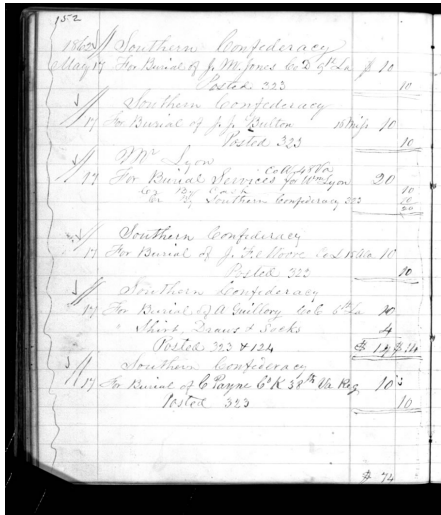 152
1862 Southern Confederacy
May 17 For Burial of J. W. Jones Co D 9th La $ 10
Posted 323 10
Southern Confederacy
17 For Burial of J. J. Bulton 16 Miss 10
Posted 323 10
Mr Lyon
17 For Burial Services for Wm Lyon 20
Co A 48 Va
Cr By Cash 10
Cr By Southern Confederacy 323 10
20
Southern Confederacy
17 For Burial of J. F. Moore Co 10
Posted 323 10
Southern Confederacy
17 For Burial of A Guillory Co C 6th La 10
" Shirt, Draws & Socks 4
Posted 323 & 124 $ 14 $ 14
Southern Confederacy
17 For Burial of C Payne Co K 38th Va Reg 10
Posted 323 10
$ 74